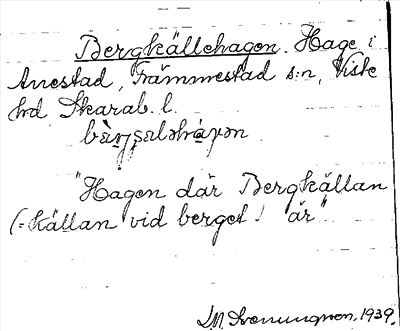 Bergkällehagen. Hage i
Anestad, Främmestad s:n, Viste
hd Skarab. l.
"Hagen där Bergkällan
(=källan vid berget) är"
1939.